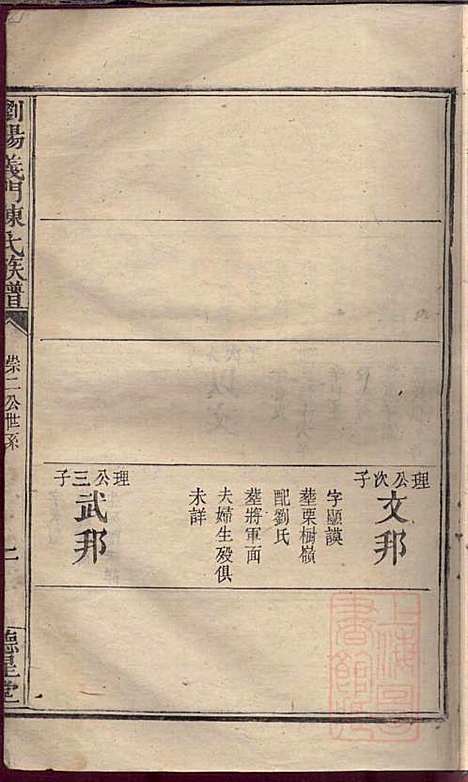 理公次子
文邦
字顯謨
塟栗樹嶺
配劉氏
塟將軍面
夫婦生殁俱
未詳
理公三子
武邦
瀏陽義門陳氏族譜
崇二公世系
二
德星堂
上海圖書館藏